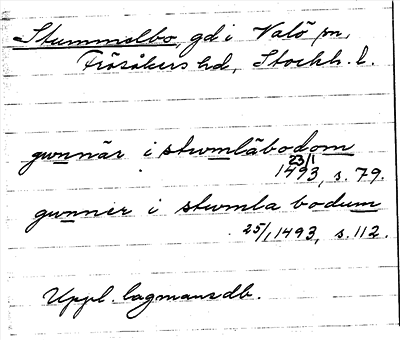 Stummelbo, gd i Valö sn,
Frösåkers hd, Stockh. l.
gunnär i stumläbodom
23/1 1493, s. 79.
gunner i stumla bodum
25/1 1493, s. 112.
Uppl. lagmansdb.